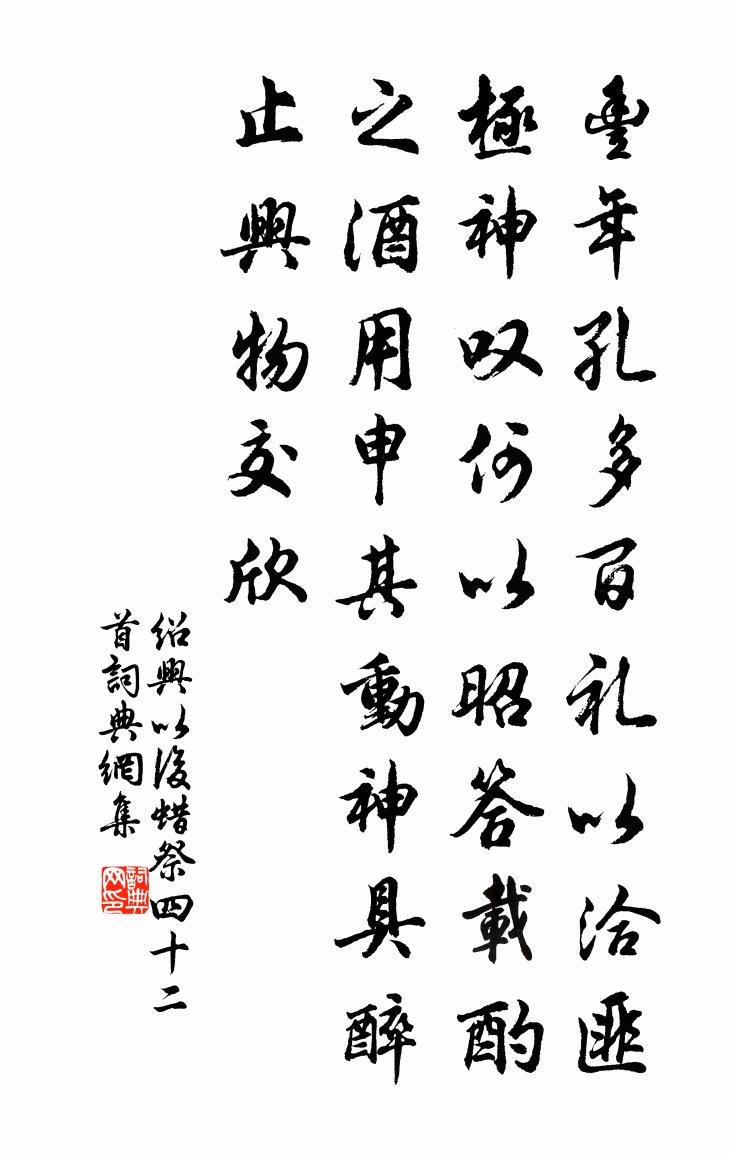 豐年孔多百礼以洽匪
極神叹何以昭答載酌
之酒用申其動神具醉
止興物交欣
紹興以後蜡祭四十二
首詞典網集
詞典网印